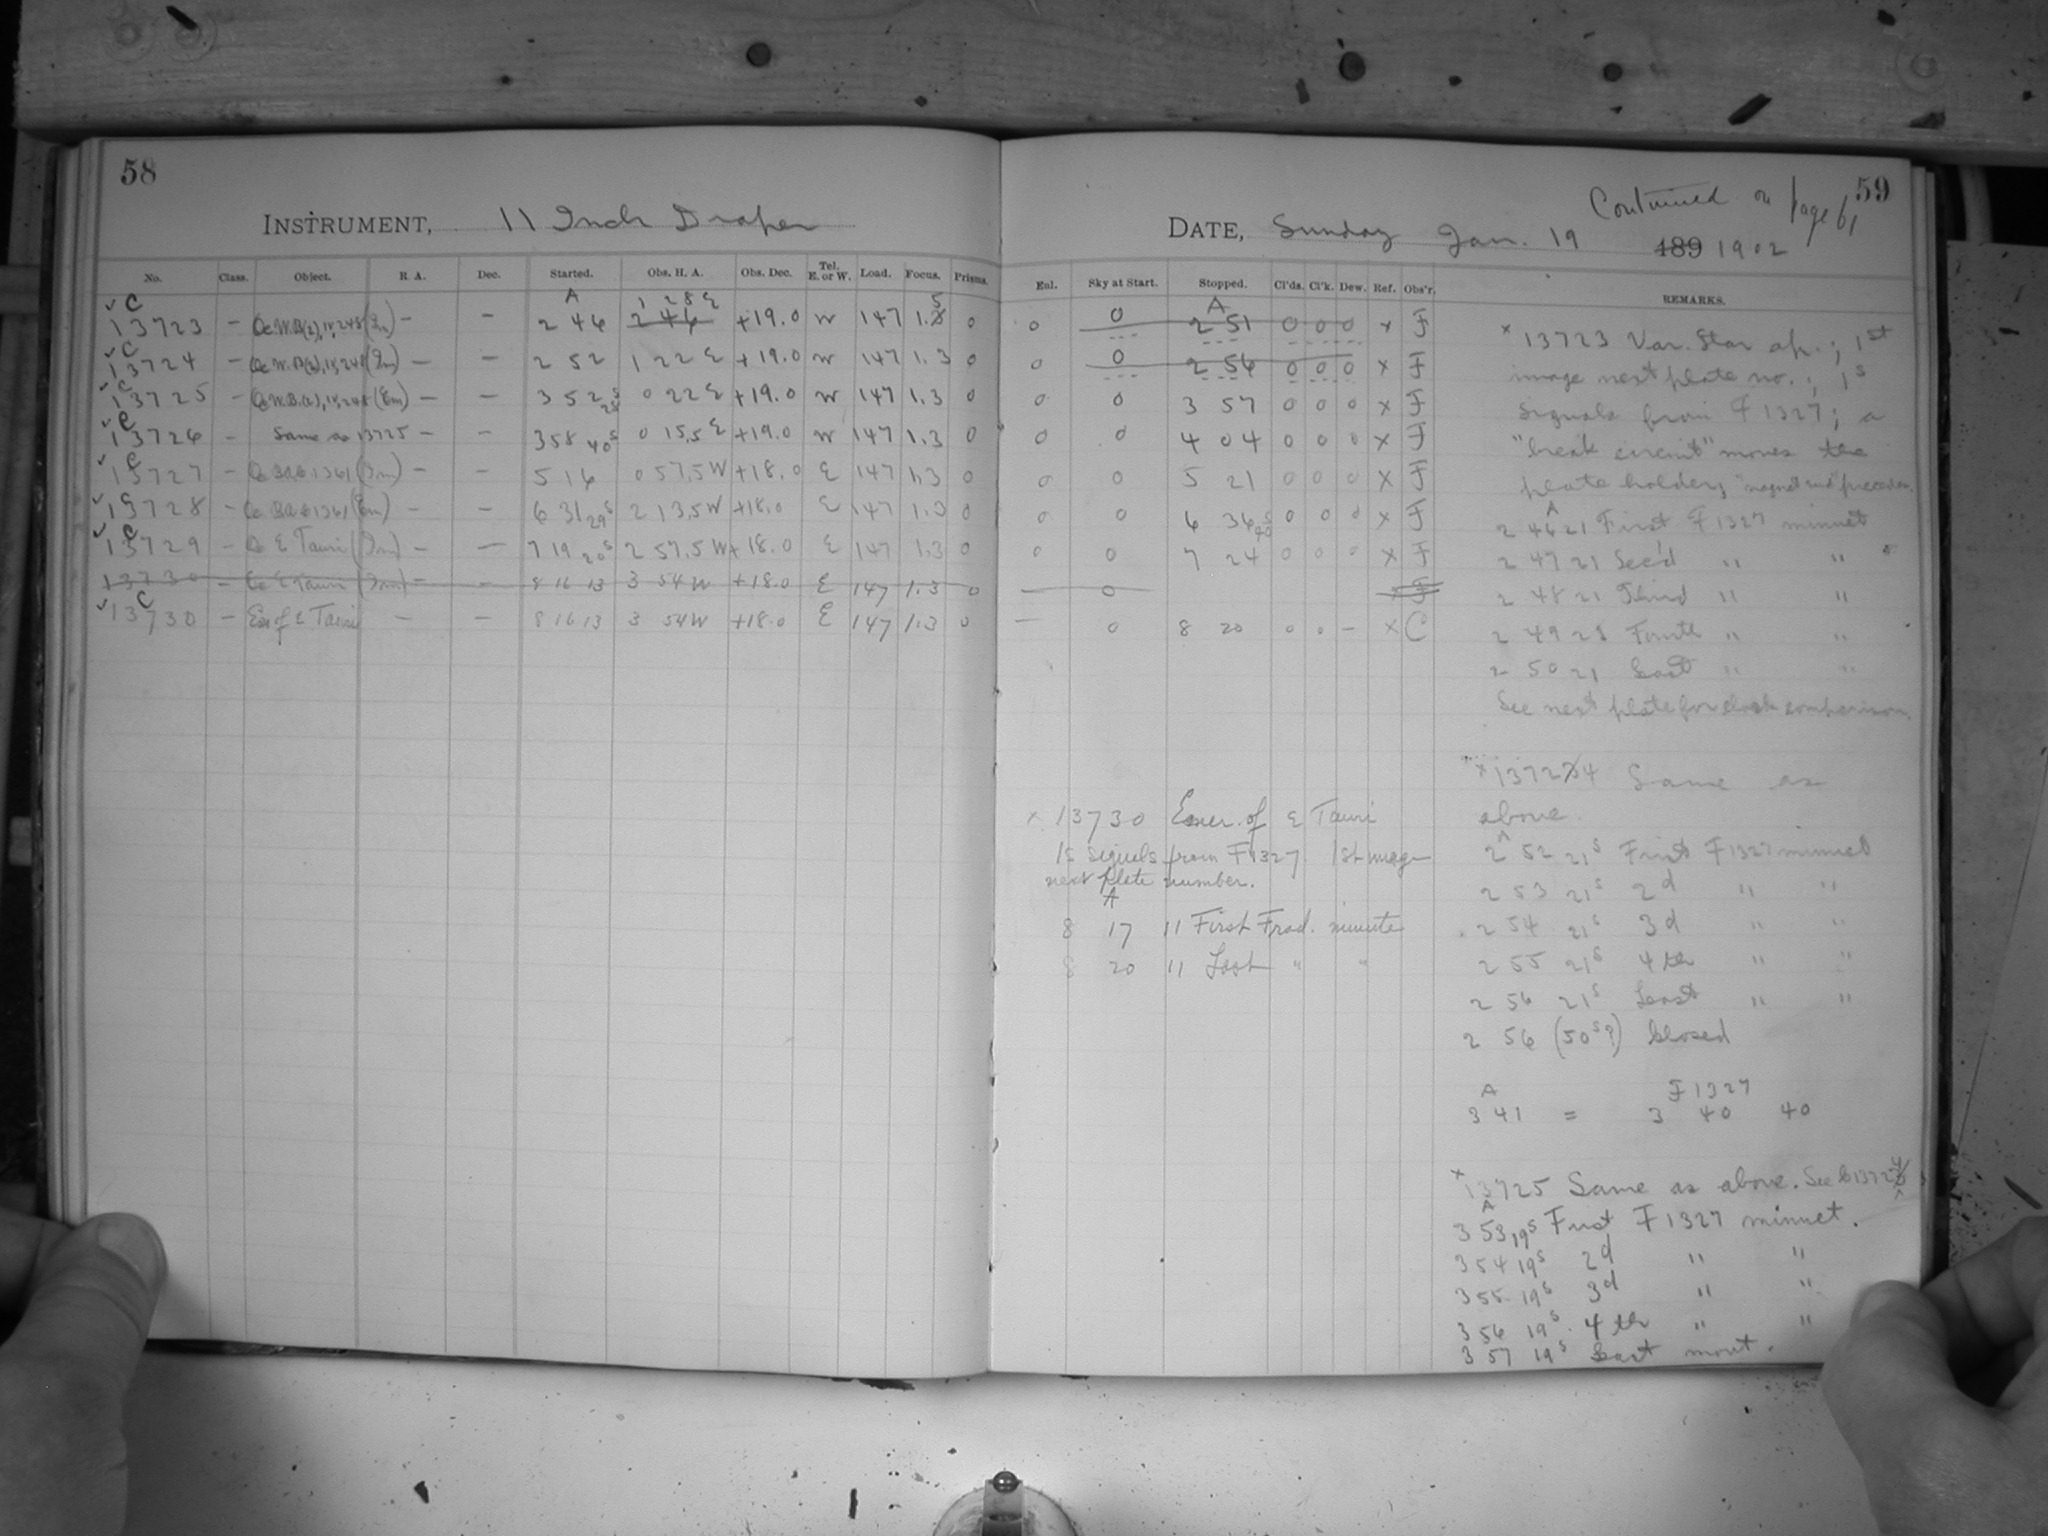 58
INSTRUMENT, 11 Inch Draper
No. Class. Object. R. A. Dec. Started. Obs. H. A. Obs. Dec. Tel. E. or W. Load. Focus. Prisms.
A 1 28 E 5
C 13723 - (Im) - - 2 46 2 46 +19.0 W 147 1.8 0
C 13724 - (Im) - - 2 52 1 22 E +19.0 W 147 1.3 0
C 13725 - (Em) - - 3 52 0 22 E +19.0 W 147 1.3 0
C 13726 - Same as 13725 - - 3 58 40s 0 15.5 E +19.0 W 147 1.3 0
C 13727 - (Im) - - 5 16 0 57.5 W +18.0 E 147 1.3 0
C 13728 - (Em) - - 6 31 29s 2 13.5 W +18.0 E 147 1.3 0
C 13729 - Oc ε Tauri (Im) - - 7 19 20s 2 57.5 W +18.0 E 147 1.3 0
13730 - Oc ε Tauri (Im) - - 8 16 13 3 54 W +18.0 E 147 1.3 0
C 13730 - Em of ε Tauri - - 8 16 13 3 54 W +18.0 E 147 1.3 0
59
Continued on page 61
DATE, Sunday Jan. 19 189 1902
Eul. Sky at Start. Stopped. Cl'ds. Cl'k. Dew. Ref. Obs'r. REMARKS.
A
0 0 2 51 0 0 0 x F
0 2 56 0 0 0 x F
0 0 3 57 0 0 0 x F
0 0 4 04 0 0 0 x F
0 0 5 21 0 0 0 x F
0 0 6 36 40s 0 0 0 x F
0 0 7 24 0 0 0 x F
— 0 x F
— 0 8 20 0 0 - x C
x 13730 Emer. of ε Tauri
1s signals from F1327. 1st image
next plate number.
A
8 17 11 First Frod. minute
8 20 11 Last " "
x 13723 Var. Star ap.; 1st
image next plate no.; 1s
signals from F 1327; a
"break circuit" moves the
plate holder;
A
2 46 21 First F1327 minuet
2 47 21 Sec'd " "
2 48 21 Third " "
2 49 21 Fourth " "
2 50 21 Last " "
See next plate for clock comparison
x 13724 Same as
above.
A
2 52 21s First F1327 minuet
2 53 21s 2d " "
2 54 21s 3d " "
2 55 21s 4th " "
2 56 21s Last " "
2 56 (50s?) Closed
A F1327
3 41 = 3 40 40
x 13725 Same as above. See
A
3 53 19s First F1327 minuet.
3 54 19s 2d " "
3 55 19s 3d " "
3 56 19s 4th " "
3 57 19s Last